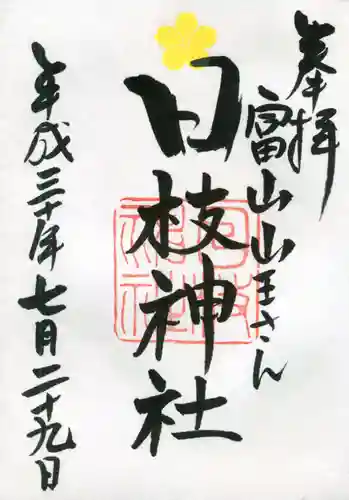 奉拝
富山山王さん
日枝神社
平成三十年七月二十九日
日枝神社